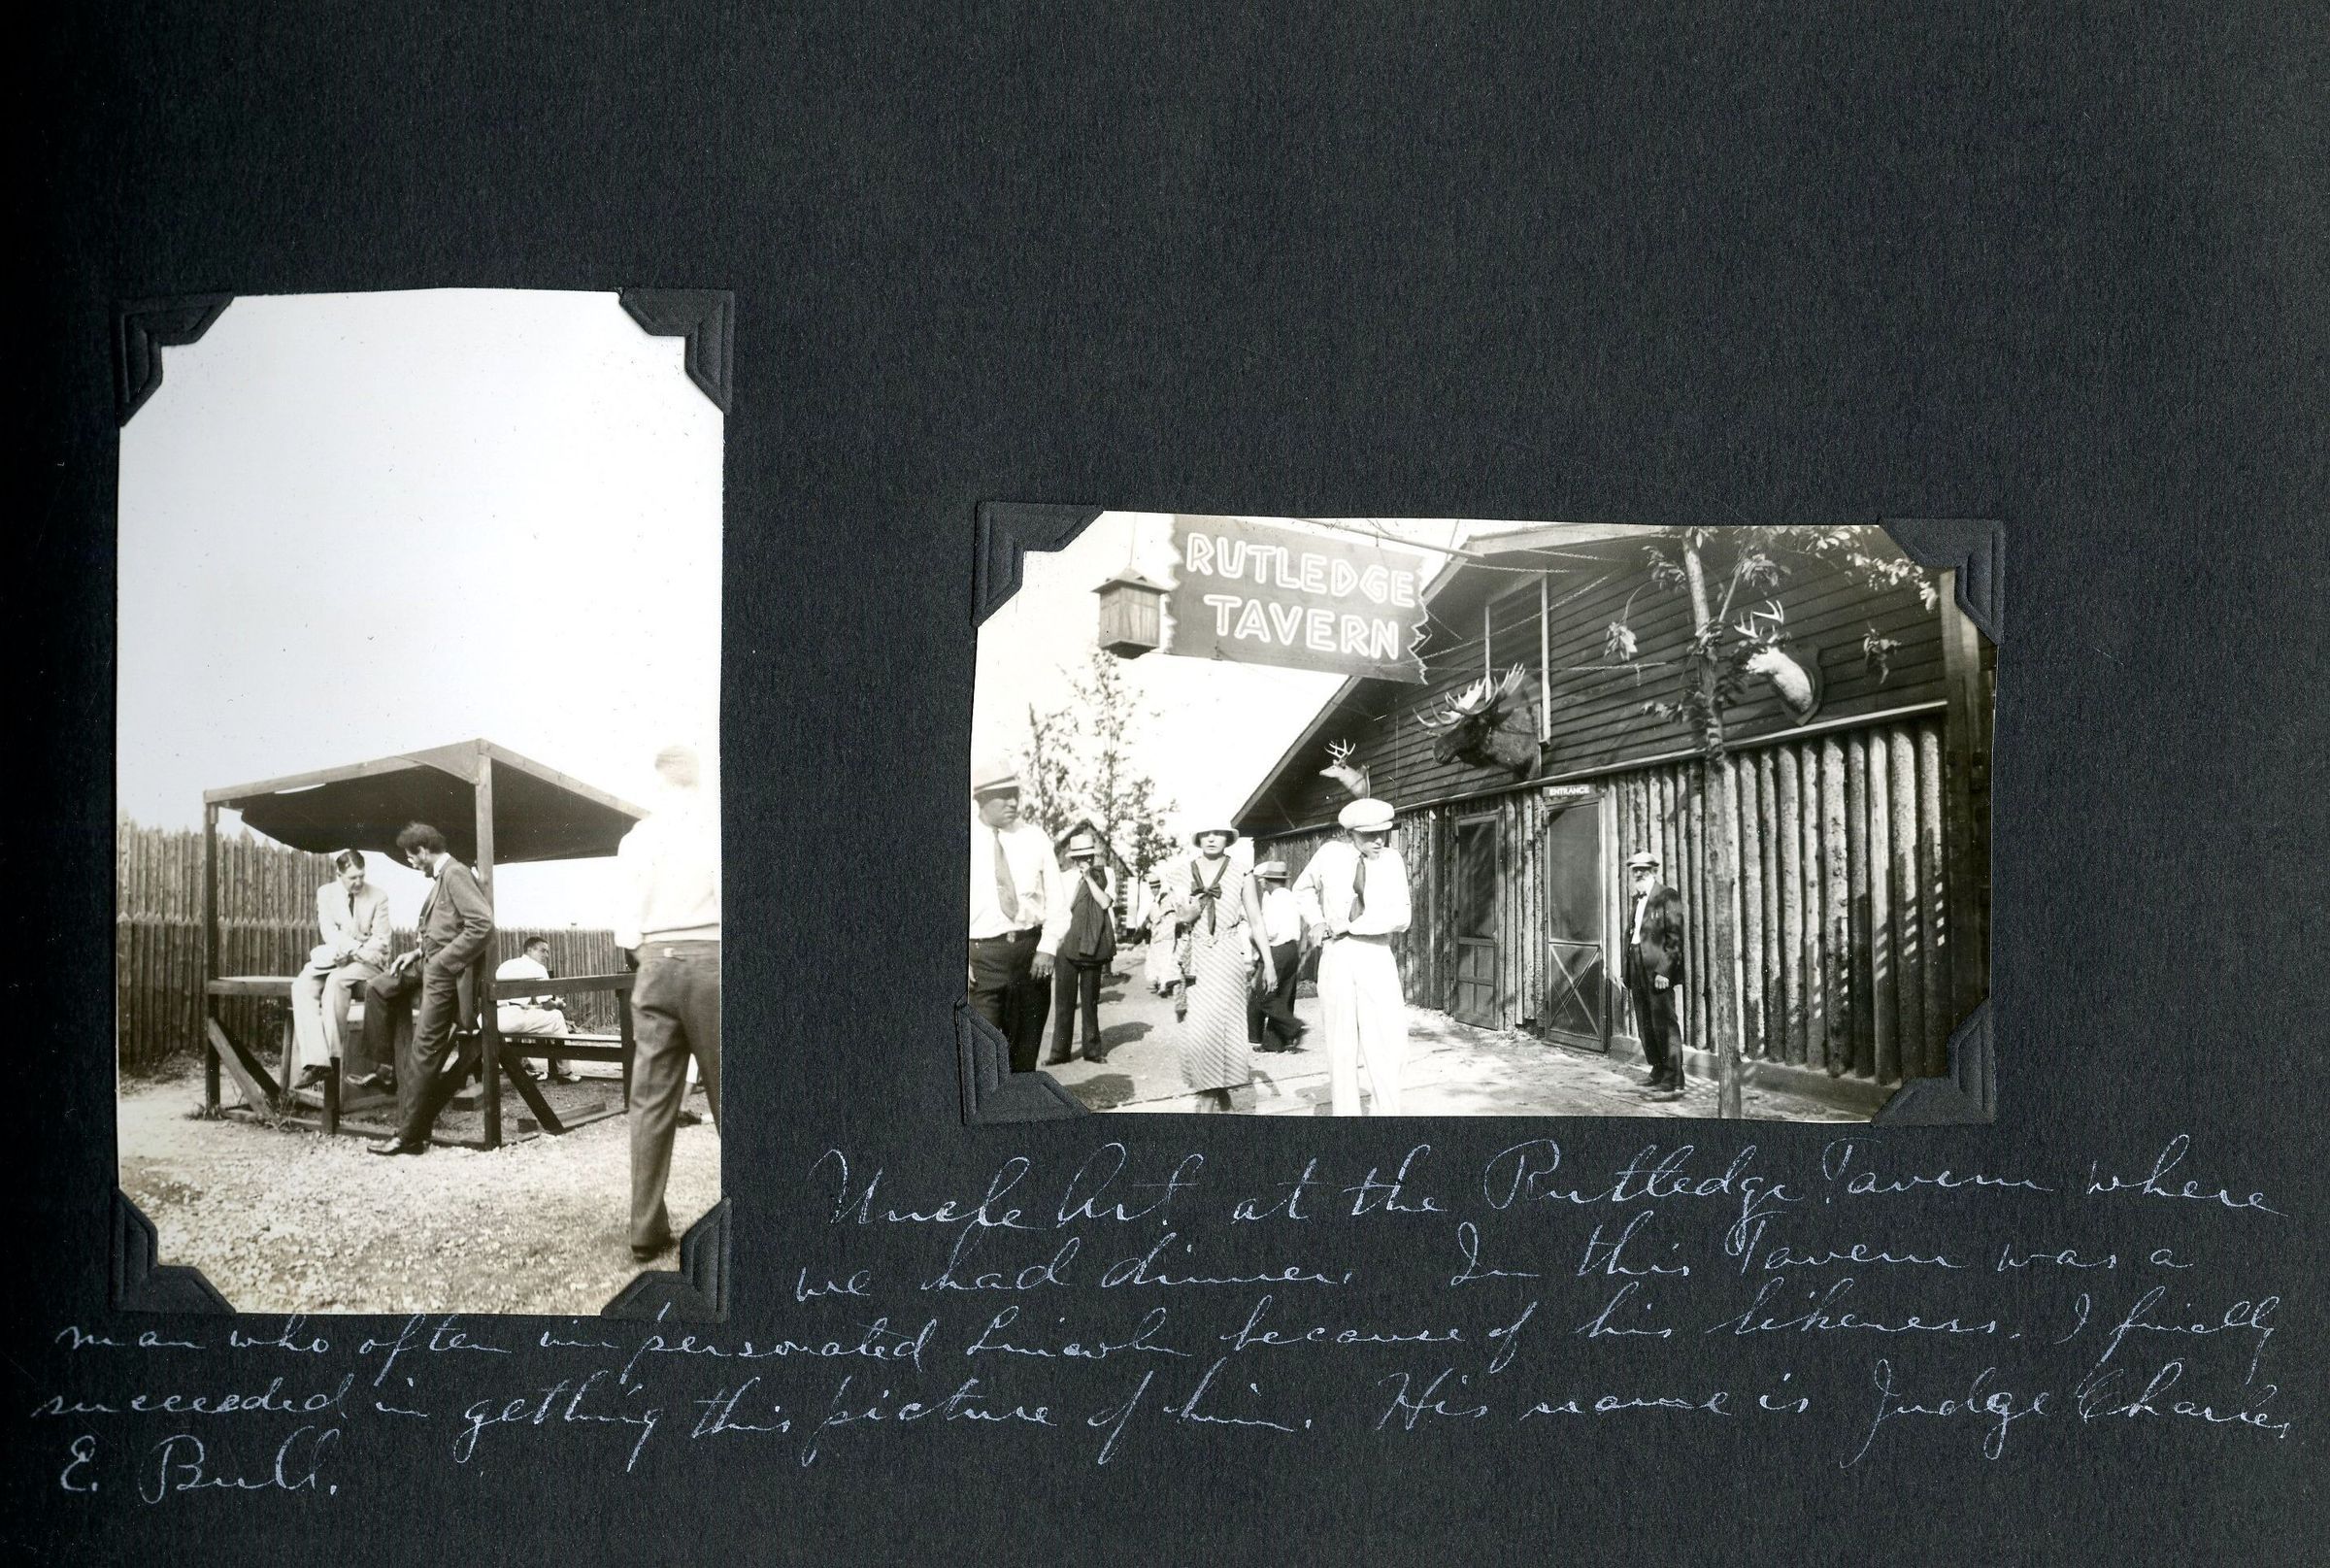 RUTLEDGE
TAVERN
ENTRANCE
Uncle Art at the Rutledge Tavern where
we had dinner. In this Tavern was a
man who often impersonated Lincoln because of his likeness. I finally
succeeded in getting this picture of him. His name is Judge Charles
E. Bull.